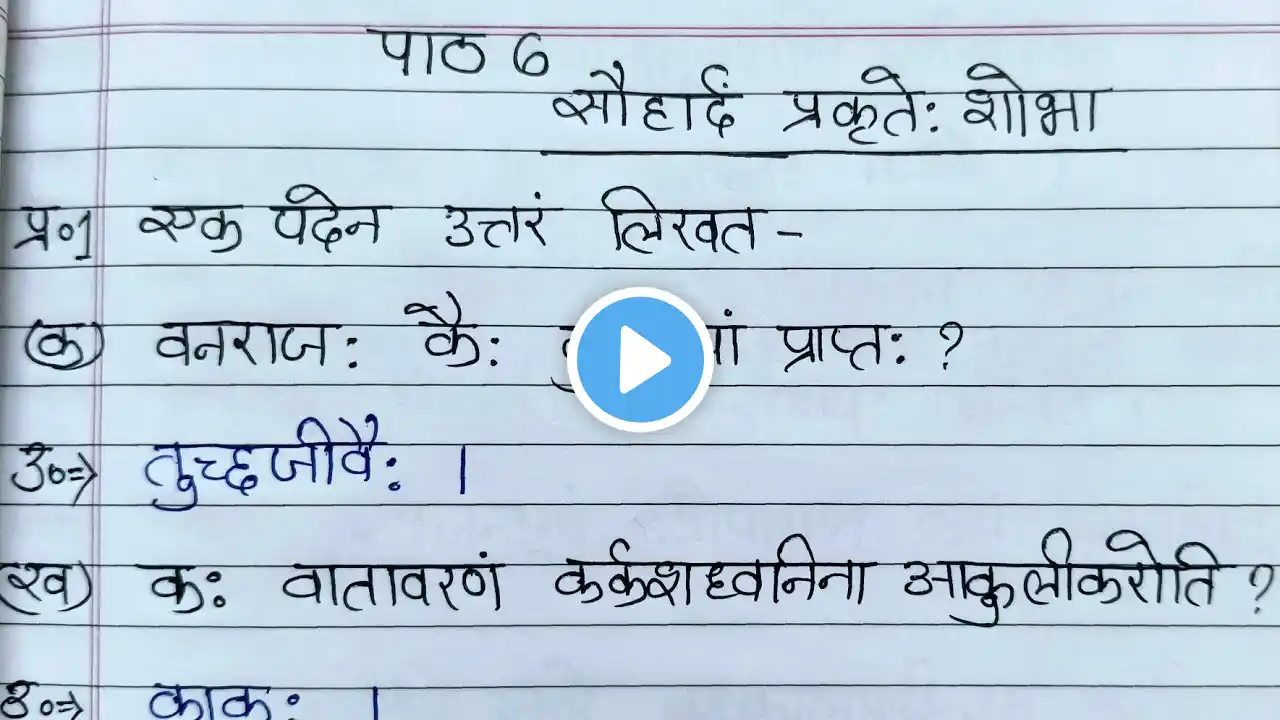 पाठ 6
सौहार्दं प्रकृतेः शोभा
प्र॰1 एक पदेन उत्तरं लिखत -
(क) वनराजः कैः प्राप्तः ?
उ॰⇒ तुच्छजीवैः ।
(ख) कः वातावरणं कर्कशध्वनिना आकुलीकरोति ?
उ॰⇒ काकः ।